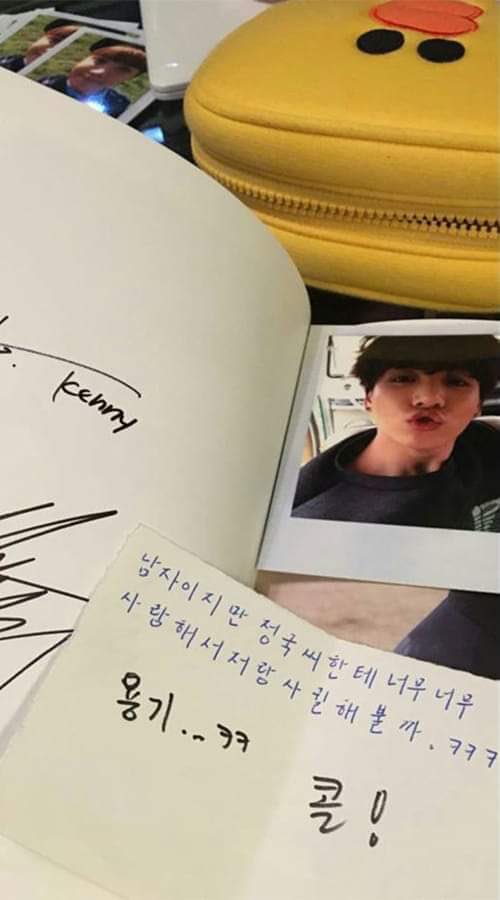 Kenny
남자이지만 정국씨한테 너무너무
사랑해서 저랑 사귈해 볼까. ㅋㅋㅋ
용기... ㅋㅋ
콜!